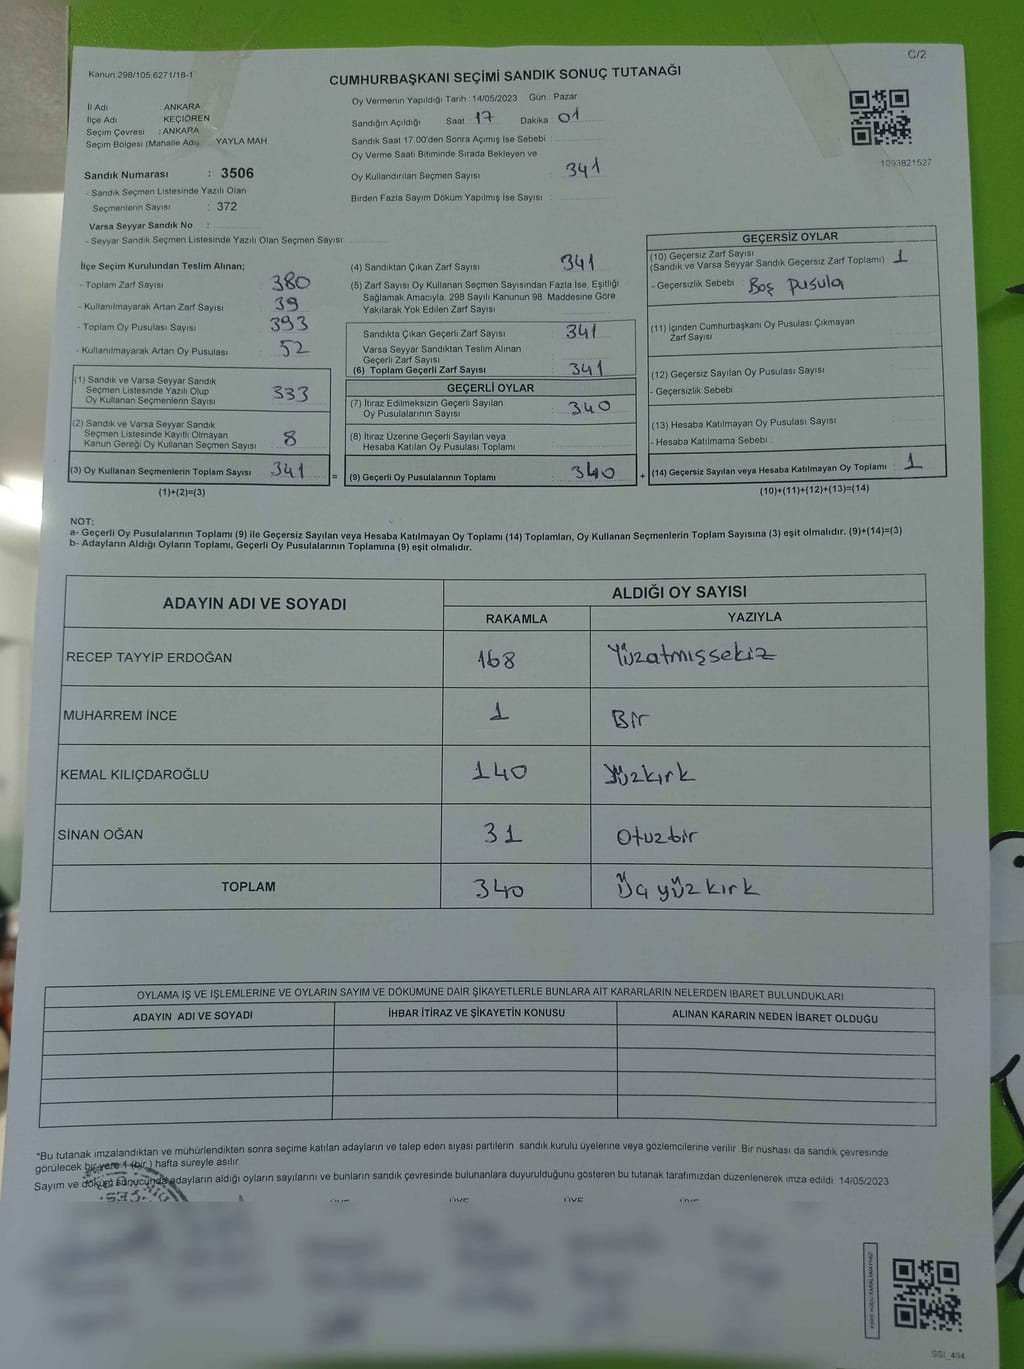 C/2
Kanun:298/105;6271/18-1
CUMHURBAŞKANI SEÇİMİ SANDIK SONUÇ TUTANAĞI
İl Adı : ANKARA
İlçe Adı : KEÇİÖREN
Seçim Çevresi : ANKARA
Seçim Bölgesi (Mahalle Adı) : YAYLA MAH.
Sandık Numarası : 3506
- Sandık Seçmen Listesinde Yazılı Olan
Seçmenlerin Sayısı : 372
Varsa Seyyar Sandık No :
- Seyyar Sandık Seçmen Listesinde Yazılı Olan Seçmen Sayısı:
Oy Vermenin Yapıldığı Tarih : 14/05/2023 Gün : Pazar
Sandığın Açıldığı Saat 17 Dakika 01
Sandık Saat 17:00'den Sonra Açımış İse Sebebi :
Oy Verme Saati Bitiminde Sırada Bekleyen ve
Oy Kullandırılan Seçmen Sayısı : 341
Birden Fazla Sayım Döküm Yapılmış İse Sayısı :
1093821527
İlçe Seçim Kurulundan Teslim Alınan;
- Toplam Zarf Sayısı : 380
- Kullanılmayarak Artan Zarf Sayısı : 39
- Toplam Oy Pusulası Sayısı : 393
- Kullanılmayarak Artan Oy Pusulası : 52
(1) Sandık ve Varsa Seyyar Sandık
Seçmen Listesinde Yazılı Olup
Oy Kullanan Seçmenlerin Sayısı : 333
(2) Sandık ve Varsa Seyyar Sandık
Seçmen Listesinde Kayıtlı Olmayan
Kanun Gereği Oy Kullanan Seçmen Sayısı : 8
(3) Oy Kullanan Seçmenlerin Toplam Sayısı : 341
(1)+(2)=(3)
(4) Sandıktan Çıkan Zarf Sayısı : 341
(5) Zarf Sayısı Oy Kullanan Seçmen Sayısından Fazla İse, Eşitliği
Sağlamak Amacıyla, 298 Sayılı Kanunun 98. Maddesine Göre
Yakılarak Yok Edilen Zarf Sayısı :
Sandıkta Çıkan Geçerli Zarf Sayısı : 341
Varsa Seyyar Sandıktan Teslim Alınan
Geçerli Zarf Sayısı :
(6) Toplam Geçerli Zarf Sayısı : 341
GEÇERLİ OYLAR
(7) İtiraz Edilmeksizin Geçerli Sayılan
Oy Pusulalarının Sayısı : 340
(8) İtiraz Üzerine Geçerli Sayılan veya
Hesaba Katılan Oy Pusulası Toplamı :
= (9) Geçerli Oy Pusulalarının Toplamı : 340 +
GEÇERSİZ OYLAR
(10) Geçersiz Zarf Sayısı
(Sandık ve Varsa Seyyar Sandık Geçersiz Zarf Toplamı) : 1
- Geçersizlik Sebebi : Boş pusula
(11) İçinden Cumhurbaşkanı Oy Pusulası Çıkmayan
Zarf Sayısı
(12) Geçersiz Sayılan Oy Pusulası Sayısı
- Geçersizlik Sebebi :
(13) Hesaba Katılmayan Oy Pusulası Sayısı
- Hesaba Katılmama Sebebi :
(14) Geçersiz Sayılan veya Hesaba Katılmayan Oy Toplamı : 1
(10)+(11)+(12)+(13)=(14)
NOT:
a- Geçerli Oy Pusulalarının Toplamı (9) ile Geçersiz Sayılan veya Hesaba Katılmayan Oy Toplamı (14) Toplamları, Oy Kullanan Seçmenlerin Toplam Sayısına (3) eşit olmalıdır. (9)+(14)=(3)
b- Adayların Aldığı Oyların Toplamı, Geçerli Oy Pusulalarının Toplamına (9) eşit olmalıdır.
ADAYIN ADI VE SOYADI ALDIĞI OY SAYISI
RAKAMLA YAZIYLA
RECEP TAYYİP ERDOĞAN 168 Yüzatmışsekiz
MUHARREM İNCE 1 Bir
KEMAL KILIÇDAROĞLU 140 Yüzkırk
SİNAN OĞAN 31 Otuzbir
TOPLAM 340 Üç yüz kırk
OYLAMA İŞ VE İŞLEMLERİNE VE OYLARIN SAYIM VE DÖKÜMÜNE DAİR ŞİKAYETLERLE BUNLARA AİT KARARLARIN NELERDEN İBARET BULUNDUKLARI
ADAYIN ADI VE SOYADI İHBAR İTİRAZ VE ŞİKAYETİN KONUSU ALINAN KARARIN NEDEN İBARET OLDUĞU
*Bu tutanak imzalandıktan ve mühürlendikten sonra seçime katılan adayların ve talep eden siyasi partilerin sandık kurulu üyelerine veya gözlemcilerine verilir. Bir nüshası da sandık çevresinde
görülecek bir yere 1 (bir) hafta süreyle asılır.
Sayım ve döküm sonucunda adayların aldığı oyların sayılarını ve bunların sandık çevresinde bulunanlara duyurulduğunu gösteren bu tutanak tarafımızdan düzenlenerek imza edildi. 14/05/2023
ÜYE ÜYE ÜYE ÜYE
SSI_494